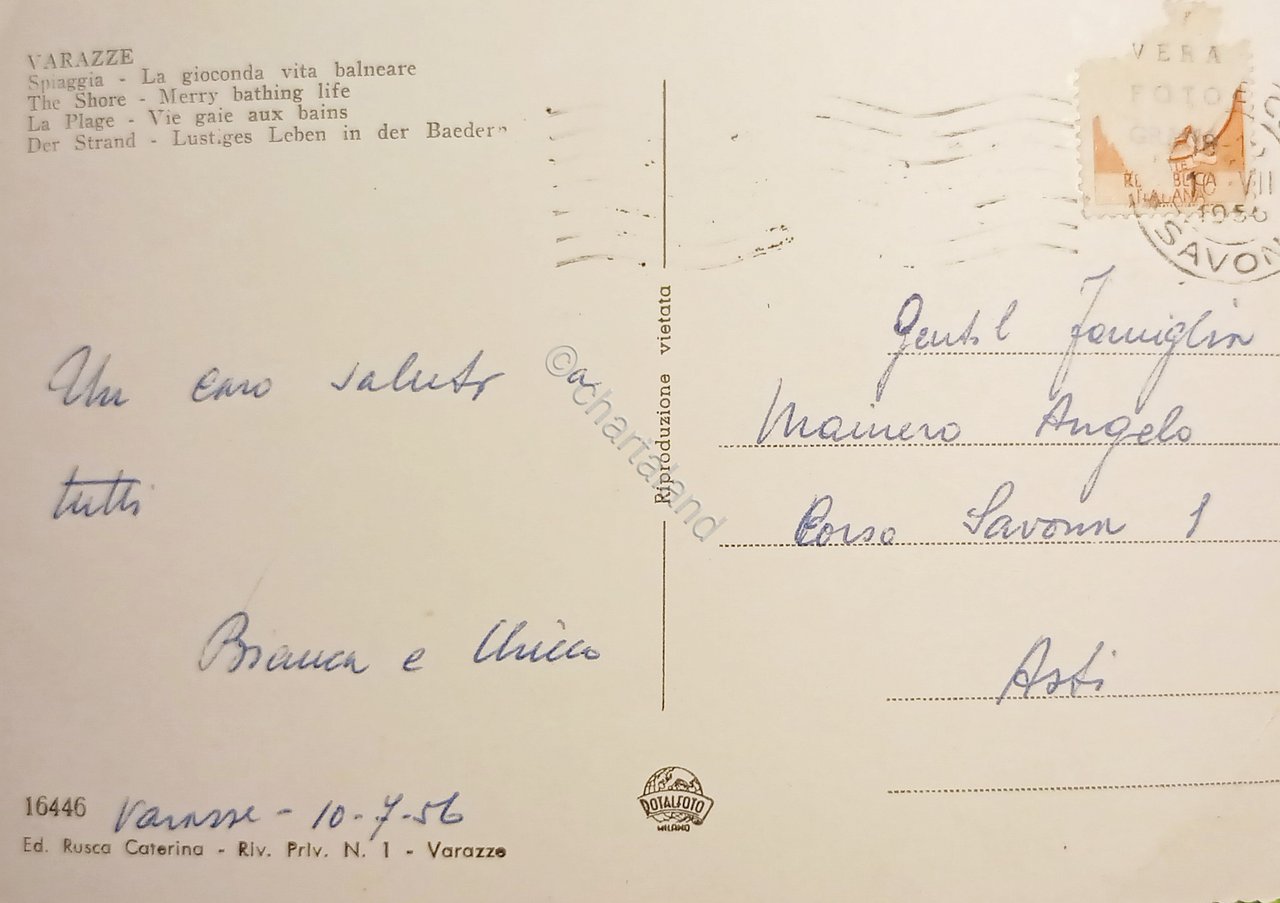 VARAZZE
Spiaggia - La gioconda vita balneare
The Shore - Merry bathing life
La Plage - Vie gaie aux bains
Der Strand - Lustiges Leben in der Baedern
VERA
FOTO
REPUBBLICA
ITALIANA
18
10 VII
1956
SAVON
Un caro saluto a
tutti
Bianca e Chicco
Riproduzione vietata
©chartaland
Gentil Famiglia
Mainero Angelo
Corso Savona 1
Asti
ROTALFOTO
MILANO
16446 Varazze - 10-7-56
Ed. Rusca Caterina - Riv. Priv. N. 1 - Varazze